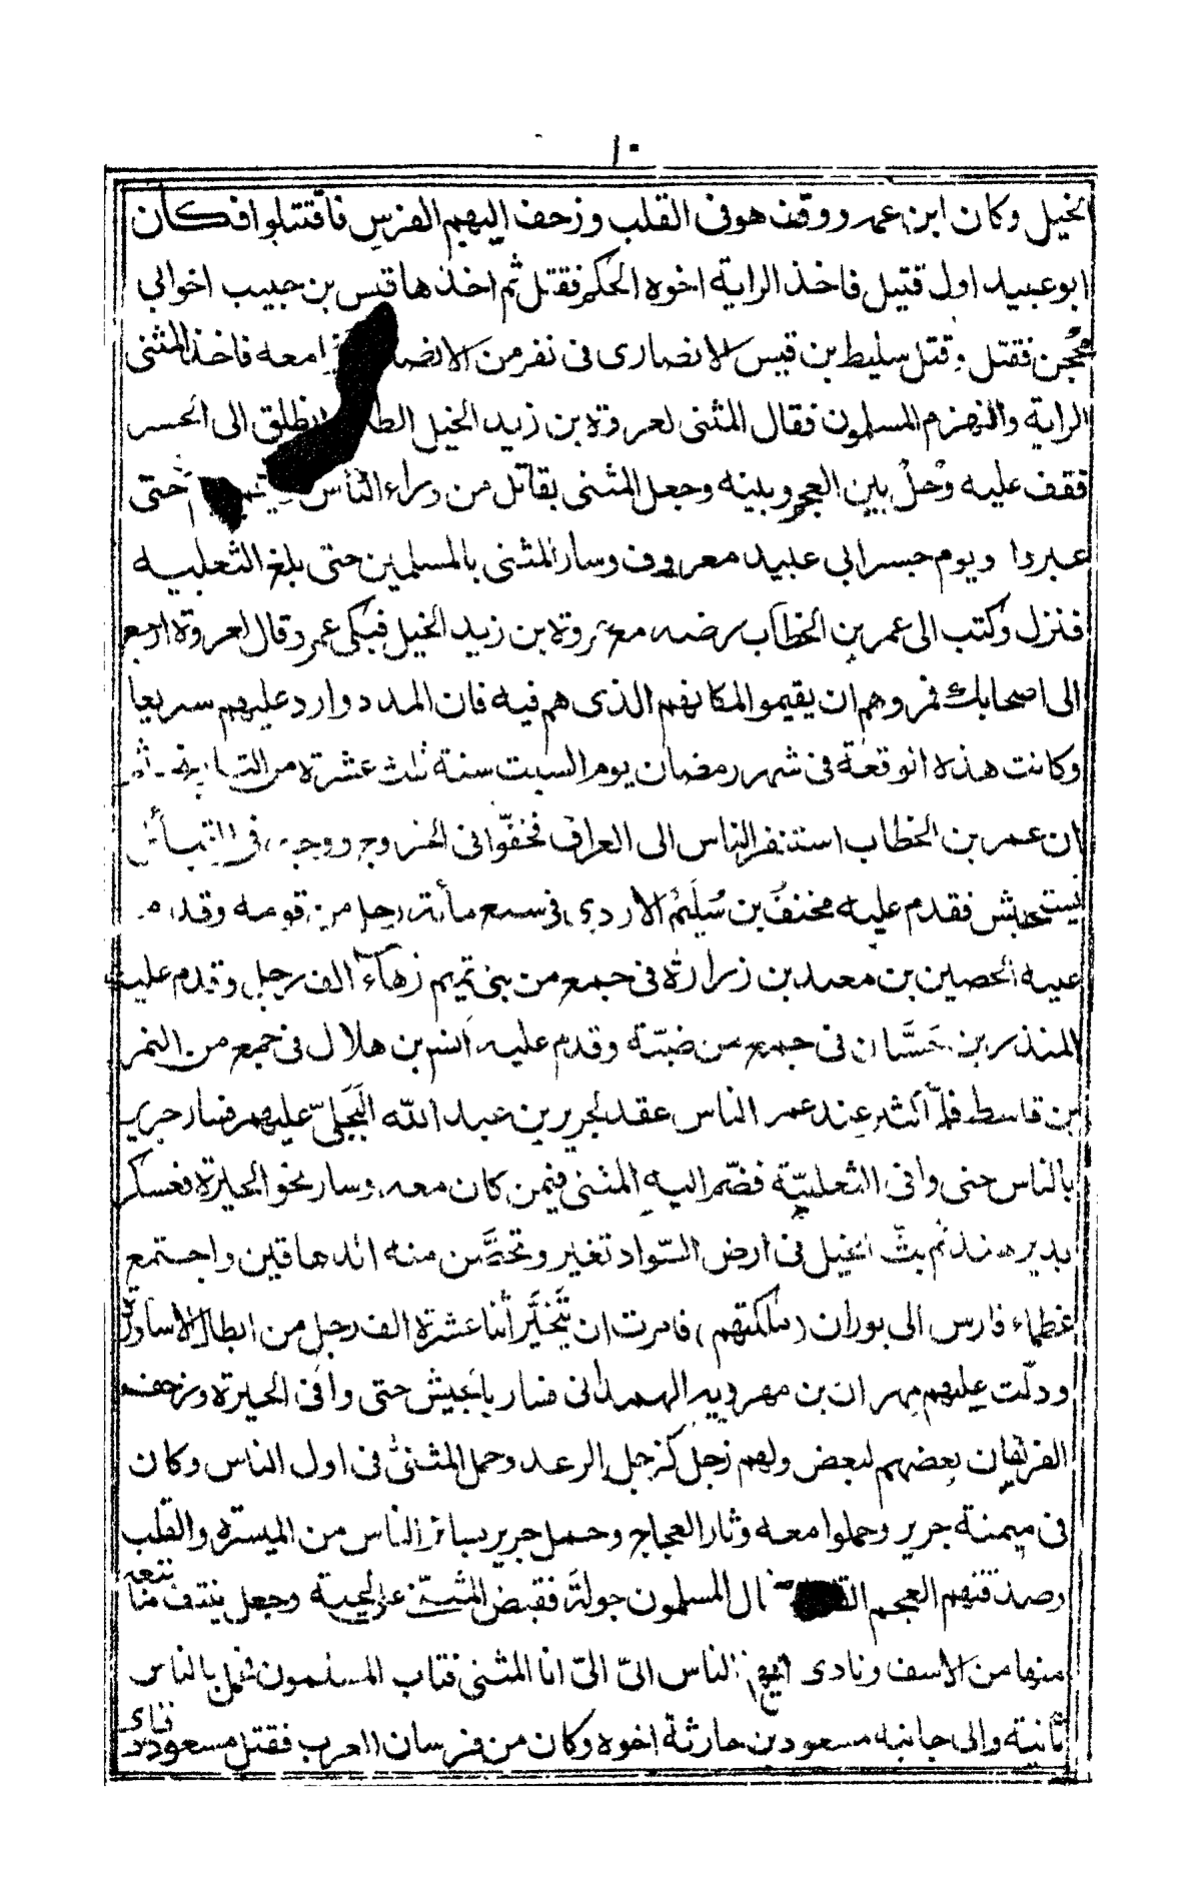 ١٠
الخيل وكان ابن عمر ووقف هو فى القلب وزحف اليهم الفرس فاقتتلوا فكان
ابو عبيد اول قتيل فاخذ الراية اخوه الحكم فقتل ثم اخذها قيس بن حبيب اخوابى
محجن فقتل وقتل سليط بن قيس الانصارى فى نفر من الانصا معه فاخذ المثنى
الراية وانهزم المسلمون فقال المثنى لعروة بن زيد الخيل الطا نطلق الى الجسر
فقف عليه وحُلْ بين العجم وبينه وجعل المثنى يقاتل من وراء الناس حتى
عبروا ويوم جسر ابى عبيد معروف وسار المثنى بالمسلمين حتى بلغ الثعلبيه
فنزل وكتب الى عمر بن الخطاب رضه مع عروة بن زيد الخيل فبكى عمر وقال لعروة ارجع
الى اصحابك فمروهم ان يقيموا لمكانهم الذى هم فيه فان المدد وارد عليهم سريعا
وكانت هذه الوقعة فى شهر رمضان يوم السبت سنة ثلث عشرة من التاريخ ثم
ان عمر بن الخطاب استنفر الناس الى العراق فخفّوا فى الخروج ووجه فى القبائل
يستجيش فقدم عليه مخنف بن سُلَيْم الازدى فى سبع مأئة رجل من قومه وقدم
عليه الحصين بن معبد بن زرارة فى جمع من بنى تميم زهاء الف رجل وقدم عليه
المنذر بن حَسَّان فى جمع من ضبّة وقدم عليه انس بن هلال فى جمع من النمر
بن قاسط فلمّا كثر عند عمر الناس عقد لجرير بن عبد اللّه البَجَلىّ عليهم فسار جرير
بالناس حتى وافى الثعلبيّة فضّم اليه المثنى فيمن كان معه وسار نحو الحيرة فعسكر
بدير هند ثم بثّ الخيل فى ارض السّواد تغير وتحصَّن منه الدهاقين واجتمع
عظماء فارس الى بوران (ملكتهم) فامرت ان يَتَخيَّر اثنا عشرة الف رجل من ابطال الاساورة
ودلّت عليهم مهران بن مهرويه الهمدانى فسار بالجيش حتى وافى الحيرة وزحف
الفريقان بعضهم لبعض ولهم زجل كزجل الرعد وحمل المثنى فى اول الناس وكان
فى ميمنة جرير وحملوا معه وثار العجاج وحمل جرير بسائر الناس من الميسرة والقلب
وصدقتهم العجم الق ال المسلمون جولة فقبض المثنى على لحيته وجعل ينتف ما تبعه
منها من الاسف ونادى ايها الناس الىّ الىّ انا المثنى فثاب المسلمون فحمل بالناس
ثانية والى جانبه مسعود بن حارثة اخوه وكان من فرسان العرب فقتل مسعود